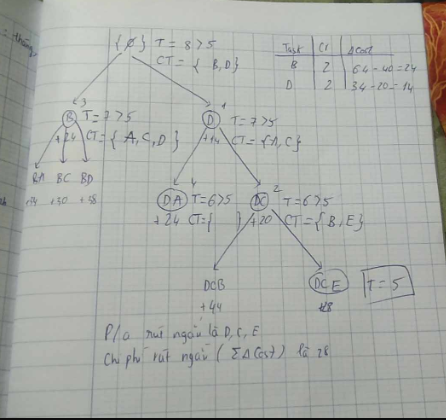 { Ø } T = 8 > 5
CT = { B, D }
Task Cr ΔCost
B 2 64 - 40 = 24
D 2 34 - 20 = 14
3
B T = 7 > 5
+24 CT = { A, C, D }
1
D T = 7 > 5
+14 CT = { A, C }
BA BC BD
+34 +30 +38
4
DA T = 6 > 5
+24 CT = { }
2
DC T = 6 > 5
+20 CT = { B, E }
DCB
+44
DCE T = 5
28
P/a rút ngắn là D, C, E
Chi phí rút ngắn ( ΣΔCost ) là 28